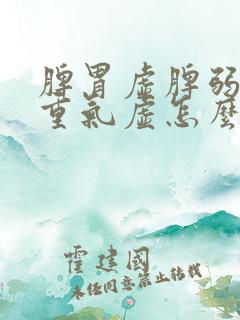 脾胃虛脾弱
重氣虛怎麼
霍建國
未任同意禁止转载